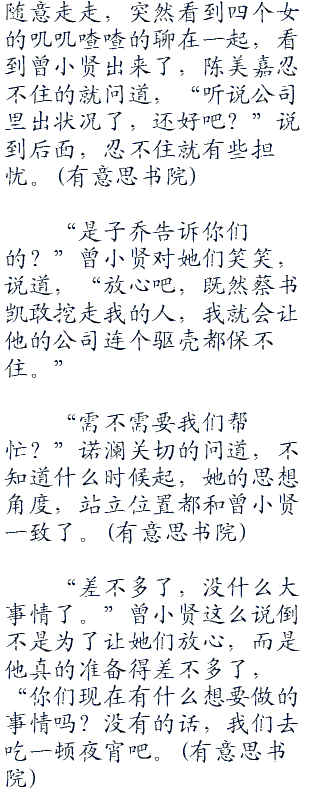 随意走走，突然看到四个女
的叽叽喳喳的聊在一起，看
到曾小贤出来了，陈美嘉忍
不住的就问道，“听说公司
里出状况了，还好吧？”说
到后面，忍不住就有些担
忧。(有意思书院)
“是子乔告诉你们
的？”曾小贤对她们笑笑，
说道，“放心吧，既然蔡书
凯敢挖走我的人，我就会让
他的公司连个驱壳都保不
住。”
“需不需要我们帮
忙？”诺澜关切的问道，不
知道什么时候起，她的思想
角度，站立位置都和曾小贤
一致了。(有意思书院)
“差不多了，没什么大
事情了。”曾小贤这么说倒
不是为了让她们放心，而是
他真的准备得差不多了，
“你们现在有什么想要做的
事情吗？没有的话，我们去
吃一顿夜宵吧。(有意思书
院)